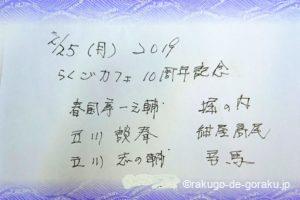 2/25(月) 2019
らくごカフェ 10周年記念
春風亭一之輔 堀の内
立川 談春 紺屋高尾
立川 志の輔 忌馬
©rakugo-de-goraku.jp